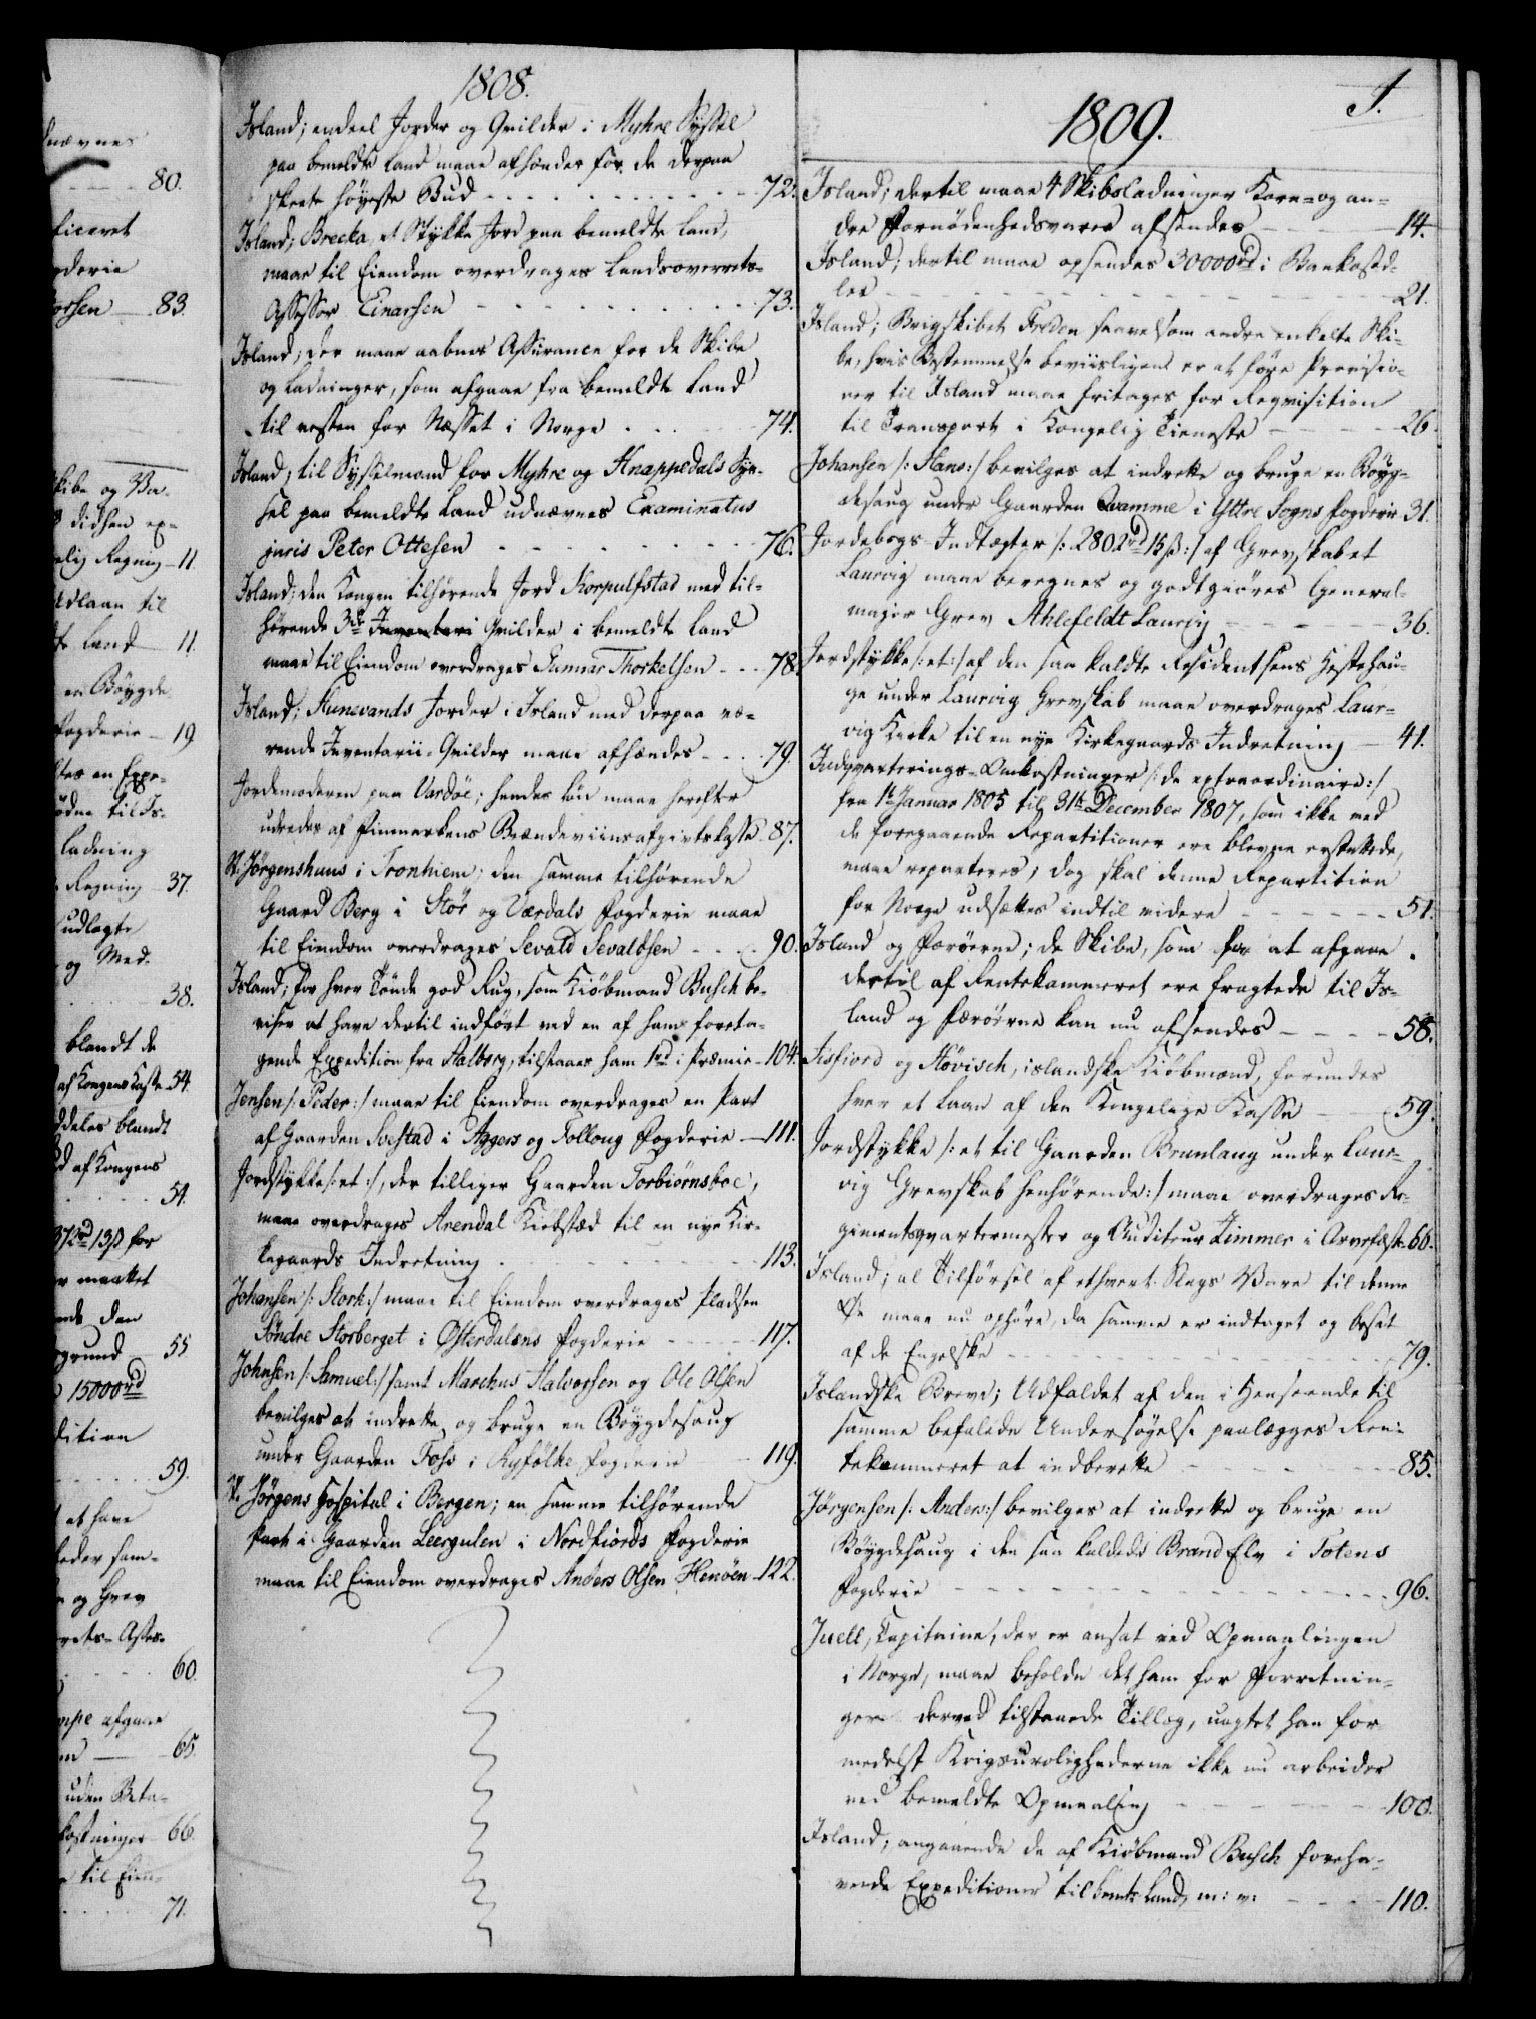 1808.
Island; endeel Jorder og Qvilder i Myhre Syssel
paa bemeldte Land maae afhændes for de derpaa
skeete høyeste Bud 72.
Island; Brecka, et Stykke Jord paa bemeldte Land,
maae til Eiendom overdrages Landsoverrets-
Assessor Einarsen 73.
Island, der maae aabnes Assurance for de Skibe
og Ladninger, som afgaae fra bemeldte Land
til vesten for Næsset i Norge 74.
Island; til Sysselmand for Myhre og Knappedals Sys-
sel paa bemeldte Land udnævnes Examinatus
juris Peter Ottesen 76.
Island; den Kongen tilhørende Jord Korpulfstad med til-
hørende 3de Inventari Qvilder i bemeldte Land
maae til Eiendom overdrages Gunnar Thorkelsen 78.
Island; Hunevands Jorder i Island med derpaa væ-
rende Inventarii-Qvilder maae afhændes 79.
Jordemoderen paa Vardöe; hendes Løn maae herefter
udredes af Finmarkens Brændeviinsafgivtskasse 87.
St. Jörgenshuus i Tronhiem; den samme tilhørende
Gaard Berg i Stör og Værdals Fogderie maae
til Eiendom overdrages Sevald Sevaldsen 90.
Island; for hver Tønde god Rug, som Kiøbmand Busch be-
viser at have dertil indført ved en af ham foreta-
gende Expedition fra Aalborg, tilstaaes ham 1rd i Præmie 104.
Jensen /: Peder:/ maae til Eiendom overdrages en Part
af Gaarden Svestad i Aggers og Folloug Fogderie 111.
Jordstykke /:et:/, der tilligger Gaarden Torbiörnsboe,
maae overdrages Arendal Kiøbsted til en nye Kir-
kegaards Indretning 113.
Johansen /: Stork:/ maae til Eiendom overdrages Pladsen
Söndre Storberget i Østerdalens Fogderie 117.
Johnsen /: Samuel:/ samt Marchus Halvorsen og Ole Olsen
bevilges at indrette og bruge en Böygdesaug
under Gaarden Foss i Ryfölke Fogderie 119.
St. Jörgens Hospital i Bergen; en samme tilhørende
Part i Gaarden Leergulen i Nordfiords Fogderie
maae til Eiendom overdrages Anders Olsen Henöen 122.
J.
1809.
Island; dertil maae 4 Skibsladninger Korn- og an-
dre Fornødenhedsvarer afsendes 14.
Island; dertil maae opsendes 30000rd i Bankosed-
ler 21.
Island; Brigskibet Freden saavelsom andre enkelte Ski-
be, hvis Bestemmelse beviisligen er at føre Provisio-
ner til Island maae fritages for Reqvisition
til Transport i Kongelig Tieneste 26.
Johansen /: Hans:/ bevilges at indrette og bruge en Böyg-
desaug under Gaarden Qvamme i Yttre Sogns Fogderie 31.
Jordebogs-Indtægter /: 2802rd 15ß:/ af Grevskabet
Laurvig maae beregnes og godtgiøres General-
major Grev Ahlefeldt Laurvig 36.
Jordstykke /:et:/ af den saa kaldte Residentsens Hestehau-
ge under Laurvig Grevskab maae overdrages Laur-
vig Kirke til en nye Kirkegaards Indretning 41.
Indqvarterings-Omkostninger /: de extraordinaire:/
fra 1te Januar 1805 til 31te December 1807, som ikke ved
de foregaaende Repartitioner ere blevne erstattede,
maae reparteres; dog skal denne Repartition
for Norge udsættes indtil videre 51.
Island og Færöerne; de Skibe, som for at afgaae
dertil af Rentekammeret ere fragtede til Is-
land og Færöerne kan nu afsendes 58.
Jisfiord og Hövisch, islandske Kiøbmænd, forundes
hver et Laan af den Kongelige Kasse 59.
Jordstykke /: et til Gaarden Brunlaug under Laur-
vig Grevskab henhørende:/ maae overdrages Re-
gimentsqvartermester og Auditeur Zimmer i Arvefæste 66.
Island; al Tilførsel af ethvert Slags Vare til denne
Øe maae nu ophøre, da samme er indtaget og besat
af de Engelske 79.
Islandske Breve; Udfaldet af den i Henseende til
samme befalede Undersøgelse paalægges Ren-
tekammeret at indberette 85.
Jörgensen /: Anders:/ bevilges at indrette og bruge en
Böygdesaug i den saa kaldede Brand Elv i Totens
Fogderie 96.
Juell, Kapitaine, der er ansat ved Opmaalingen
i Norge, maae beholde det ham for Forretnin-
gen derved tilstaaede Tillæg, uagtet han for
medelst Krigsurolighederne ikke nu arbeider
ved bemeldte Opmaaling 100.
Island; angaaende de af Kiøbmand Busch foreha-
vende Expeditioner til bemte Land m: v: 110.